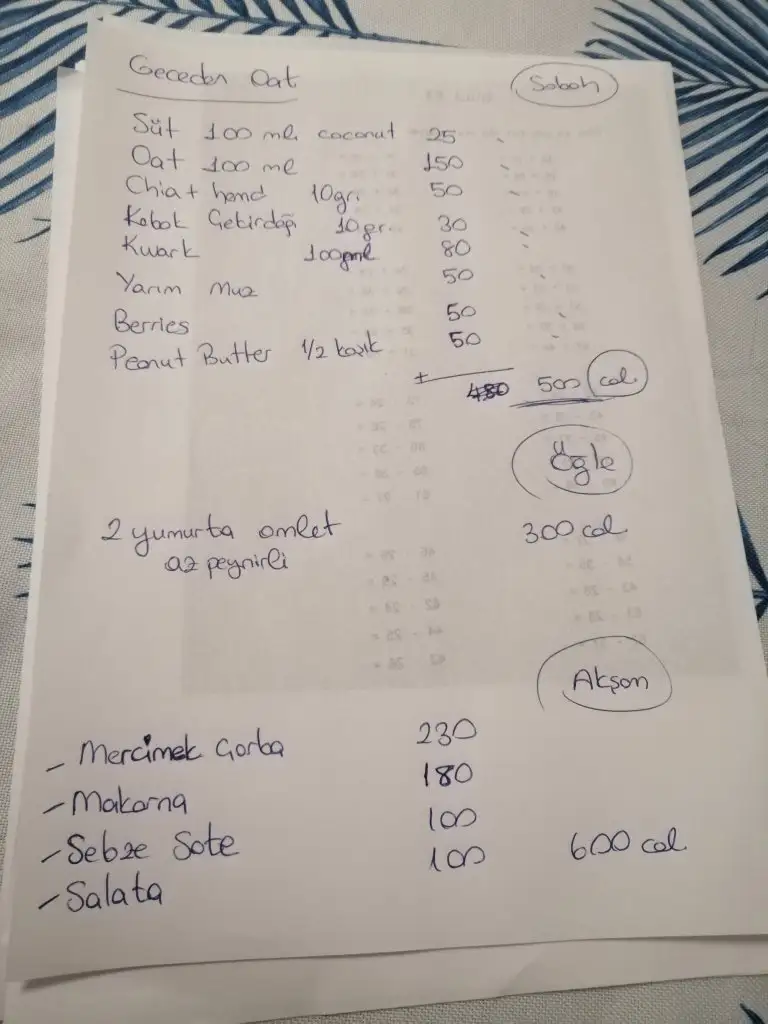 Geceden Oat Sabah
Süt 100 ml coconut 25
Oat 100 ml 150
Chia + hemd 10gr. 50
Kabak Çekirdağı 10gr. 30
Kwark 100ml 80
Yarım muz 50
Berries 50
Peanut Butter 1/2 kaşık 50
+ 480 500 cal
Öğle
2 yumurta omlet 300 cal
az peynirli
Akşam
- Mercimek Çorba 230
- Makarna 180
- Sebze Sote 100
- Salata 100 600 cal